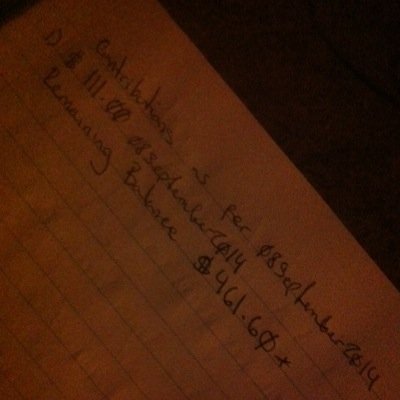 Contributions as per 08September2014
D. $ 111.00 08September2014
Remaining Balance $ 461.60 *